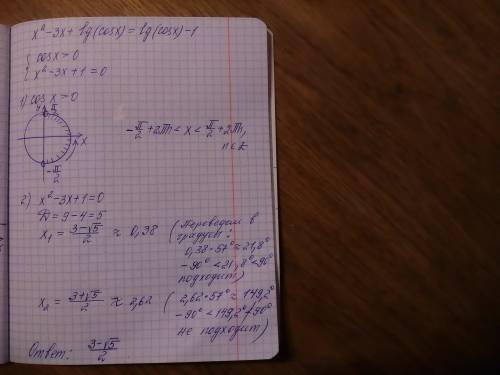 x² - 3x + lg(cosx) = lg(cosx) - 1
{ cosx > 0
x² - 3x + 1 = 0
1) cosx > 0
y π/2
x
-π/2
-π/2 + 2πn < x < π/2 + 2πn,
n∈Z
2) x² - 3x + 1 = 0
D = 9 - 4 = 5
x₁ = (3-√5)/2 ≈ 0,38 (Переводим в
градусы:
0,38·57° ≈ 21,8°
-90° < 21,8° < 90°
подходит)
x₂ = (3+√5)/2 ≈ 2,62 (2,62·57° ≈ 149,2°
-90° < 149,2° ≮ 90°
не подходит)
Ответ: (3-√5)/2